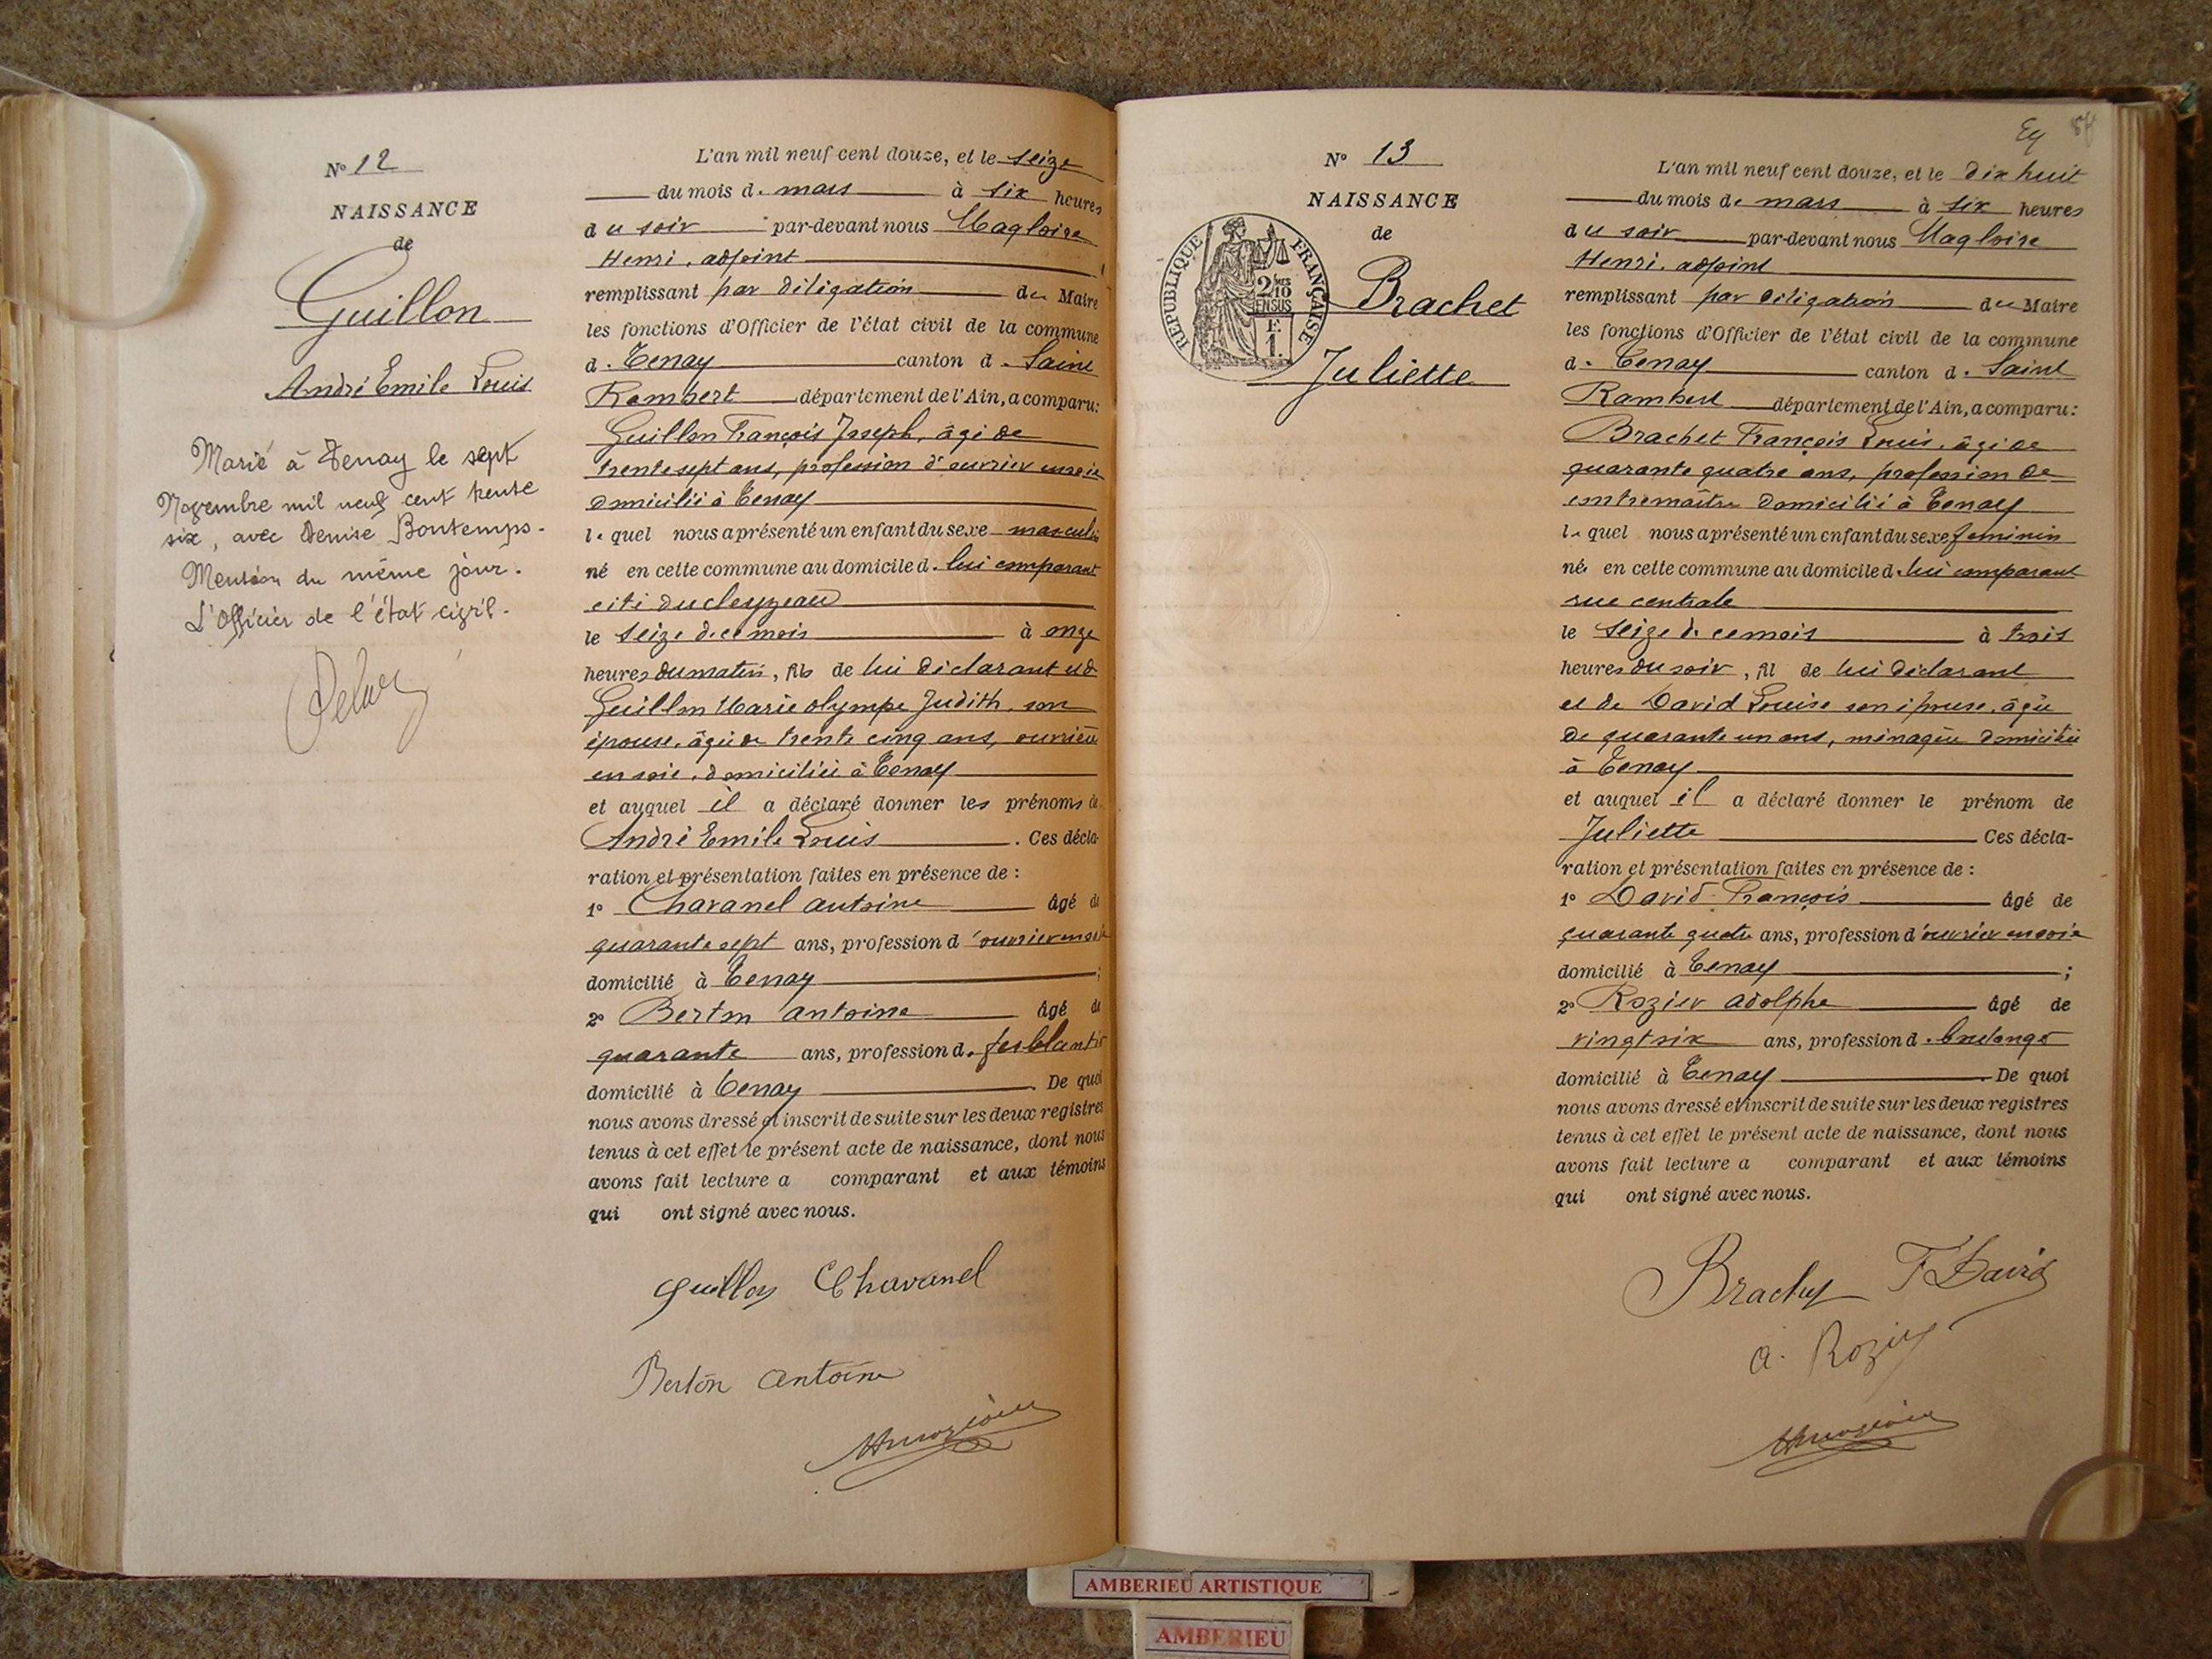 N° 12
NAISSANCE
de
Guillon
André Emile Louis
Marié à Tenay le sept
Novembre mil neuf cent trente
six, avec Denise Bontemps.
Mention du même jour.
L'Officier de l'état civil.
L'an mil neuf cent douze, et le seize
du mois de mars à six heures
du soir par-devant nous Magloire
Henri, adjoint
remplissant par déligation du Maire
les fonctions d'Officier de l'état civil de la commune
de Tenay canton de Saint
Rambert département de l'Ain, a comparu:
Guillon François Joseph, âgé de
trente sept ans, profession d'ouvrier en soie
domicilié à Tenay
lequel nous a présenté un enfant du sexe masculin
né en cette commune au domicile de lui comparant
cité du cleyzeau
le seize de ce mois à onze
heures du matin, fils de lui déclarant et de
Guillon Marie Olympe Judith, son
épouse, âgée de trente cinq ans, ouvrière
en soie, domiciliée à Tenay
et auquel il a déclaré donner les prénoms de
André Emile Louis . Ces décla-
ration et présentation faites en présence de :
1° Chavanel antoine âgé de
quarante sept ans, profession d'ouvrier en soie
domicilié à Tenay ;
2° Berton antoine âgé de
quarante ans, profession de ferblantier
domicilié à Tenay . De quoi
nous avons dressé et inscrit de suite sur les deux registres
tenus à cet effet le présent acte de naissance, dont nous
avons fait lecture a comparant et aux témoins
qui ont signé avec nous.
Guillon Chavanel
Berton antoine
N° 13
NAISSANCE
de
Brachet
Juliette
REPUBLIQUE FRANÇAISE
2/10 EN SUS
F.
1.
L'an mil neuf cent douze, et le dix huit
du mois de mars à six heures
du soir par-devant nous Magloire
Henri, adjoint
remplissant par déligation du Maire
les fonctions d'Officier de l'état civil de la commune
de Tenay canton de Saint
Rambert département de l'Ain, a comparu:
Brachet François Louis, âgé de
quarante quatre ans, profession de
contremaître domicilié à Tenay
lequel nous a présenté un enfant du sexe feminin
née en cette commune au domicile de lui comparant
rue centrale
le seize de ce mois à trois
heures du soir, fil de lui déclarant
et de David Louise son épouse, âgée
de quarante un ans, ménagère domiciliée
à Tenay
et auquel il a déclaré donner le prénom de
Juliette Ces décla-
ration et présentation faites en présence de :
1° David François âgé de
quarante quatre ans, profession d'ouvrier en soie
domicilié à Tenay ;
2° Rozier adolphe âgé de
vingt six ans, profession de boulanger
domicilié à Tenay . De quoi
nous avons dressé et inscrit de suite sur les deux registres
tenus à cet effet le présent acte de naissance, dont nous
avons fait lecture a comparant et aux témoins
qui ont signé avec nous.
Brachet F David
a. Rozier
AMBERIEU ARTISTIQUE
AMBERIEU